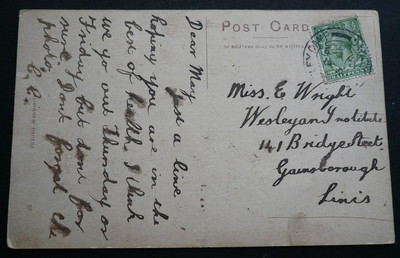 POST CARD
Dear May
Just a line
hoping you are in the
best of health I think
we go our Thursday or
Friday but dont for
sure. Dont forget the
photo.
Miss. E Wright
Wesleyan Institute
141 Bridge Street
Gainsborough
Lincs